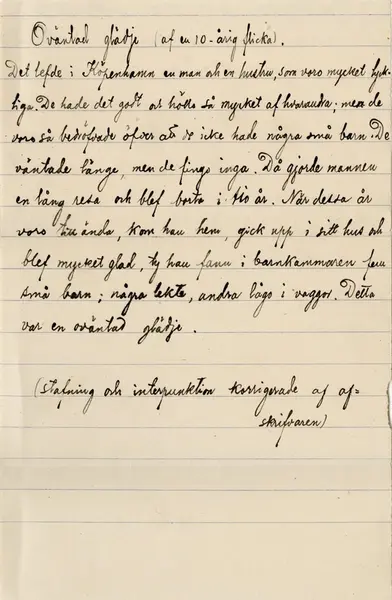 Oväntad glädje (af en 10-årig flicka).
Det lefde i Köpenhamn en man och en hustru, som voro mycket lyck-
liga. De hade det godt och höllo så mycket af hvarandra; men de
voro så bedröfvade öfver att de icke hade några små barn. De
väntade länge, men de fingo inga. Då gjorde mannen
en lång resa och blef borta i tio år. När dessa år
voro till ända, kom han hem, gick upp i sitt hus och
blef mycket glad, ty han fann i barnkammaren fem
små barn; några lekte, andra lågo i vaggor. Detta
var en oväntad glädje.
(stafning och interpunktion korrigerade af af-
skrifvaren)